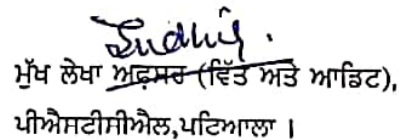 Sudhir.
ਮੁੱਖ ਲੇਖਾ ਅਫ਼ਸਰ (ਵਿੱਤ ਅਤੇ ਆਡਿਟ),
ਪੀਐਸਟੀਸੀਐਲ,ਪਟਿਆਲਾ ।